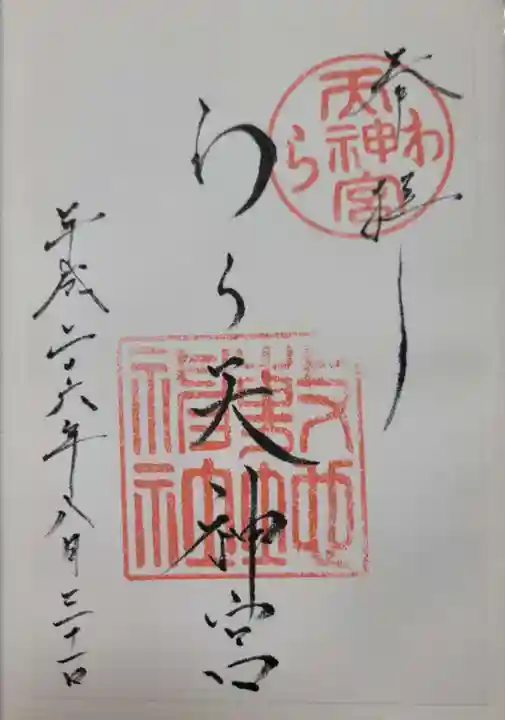 奉拝し
わら天神宮
平成二十六年八月三十一日
わら
天神宮
敷地神社